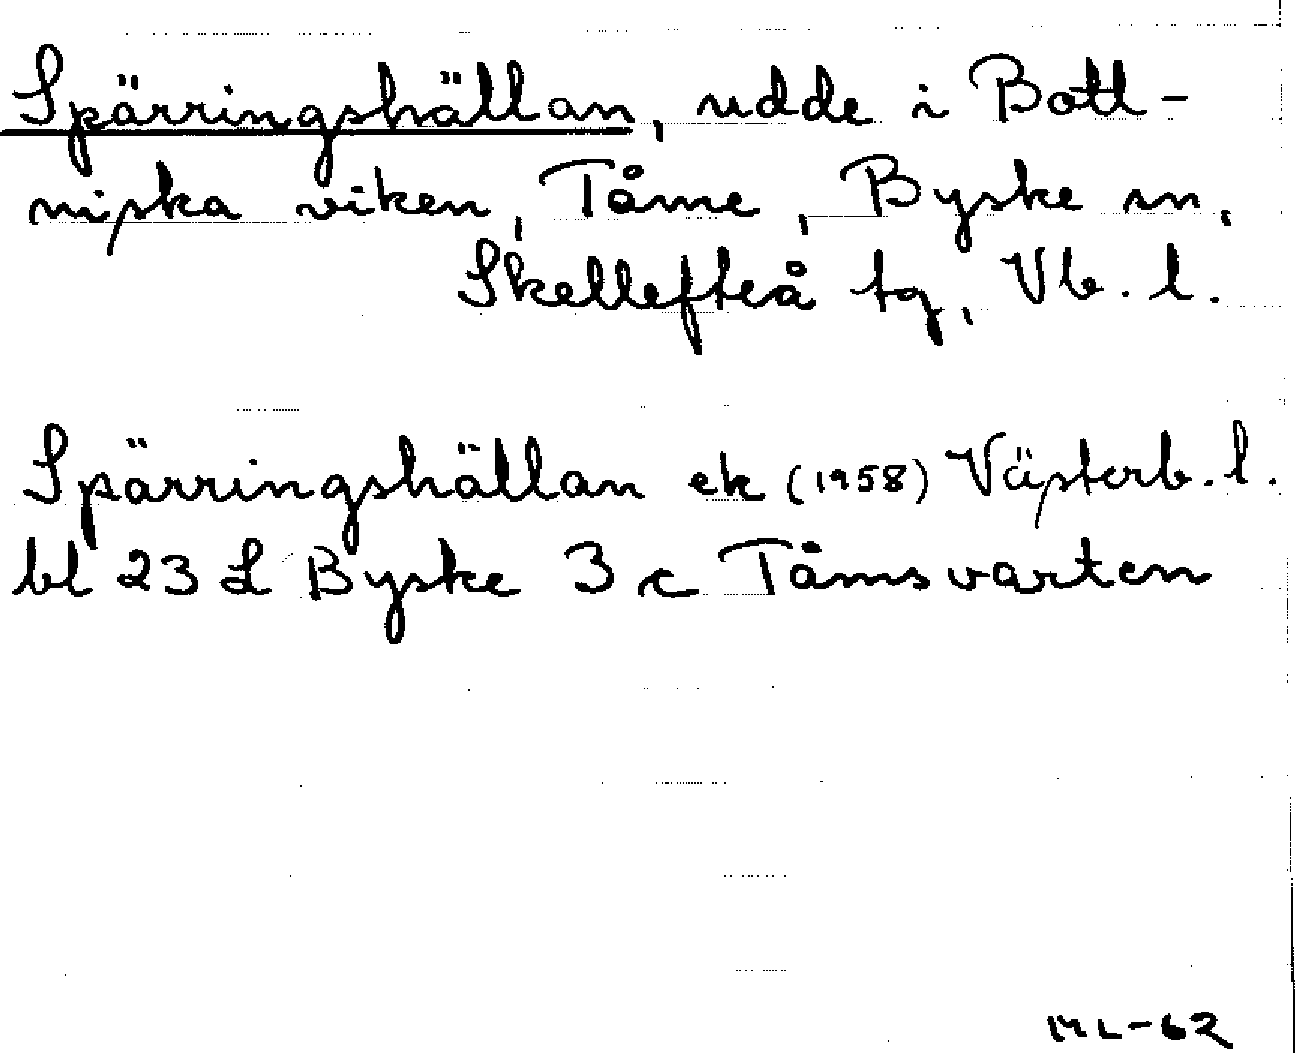 Spärringshällan, udde i Bott-
niska viken, Tåme, Byske sn,
Skellefteå tg, Vb. l.
Spärringshällan ek (1958) Västerb. l.
bl 23 L Byske 3 c Tåmsvarten
ML-62